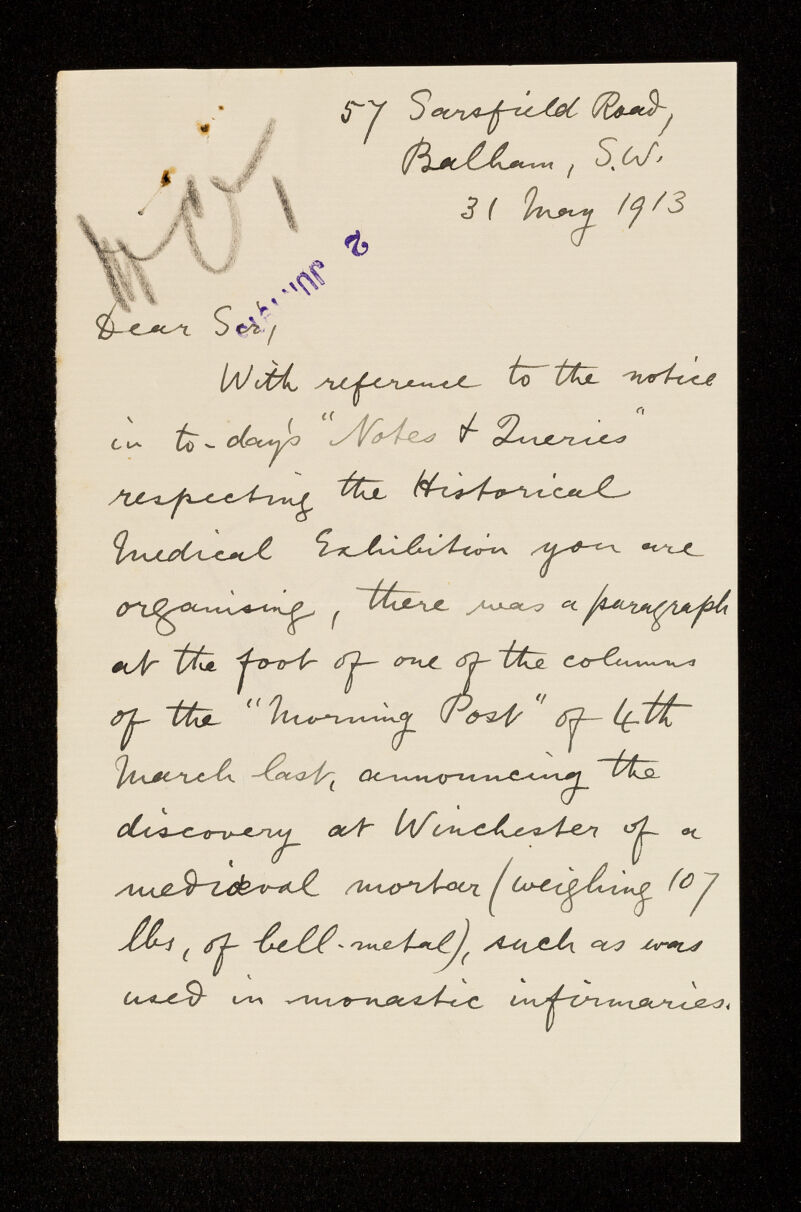 57 Sarsfield Road,
Balham, S.W.
31 May 1913
2 JUN 1913
Dear Sir,
With reference to the notice
in to-day's "Notes & Queries"
respecting the Historical
Medical Exhibition you are
organising, there was a paragraph
at the foot of one of the columns
of the "Morning Post" of 4th
March last, announcing the
discovery at Winchester of a
mediæval mortar (weighing 107
lbs, of bell-metal), such as was
used in monastic infirmaries.